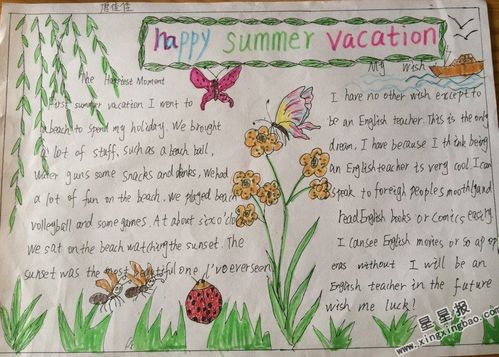 happy summer vacation
The Happiest Moment
First summer vacation I went to
a beach to spend my holiday. We brought
a lot of staff, such as a beach ball,
water guns some snacks and drinks, We had
a lot of fun on the beach. We played beach
volleyball and some games. At about six o'clock
we sat on the beach watching the sunset. The
sunset was the most beautiful one I've ever seen
My wish
I have no other wish except to
be an English teacher This is the only
dream, I have because I think being
an English teacher is very cool I can
speak to foreign peoples mouthly and
Read English books or comics easily
I can see English movies or so ap op
eras without I will be an
English teacher in the future
wish me luck!
星星报
www.xingxingbao.com